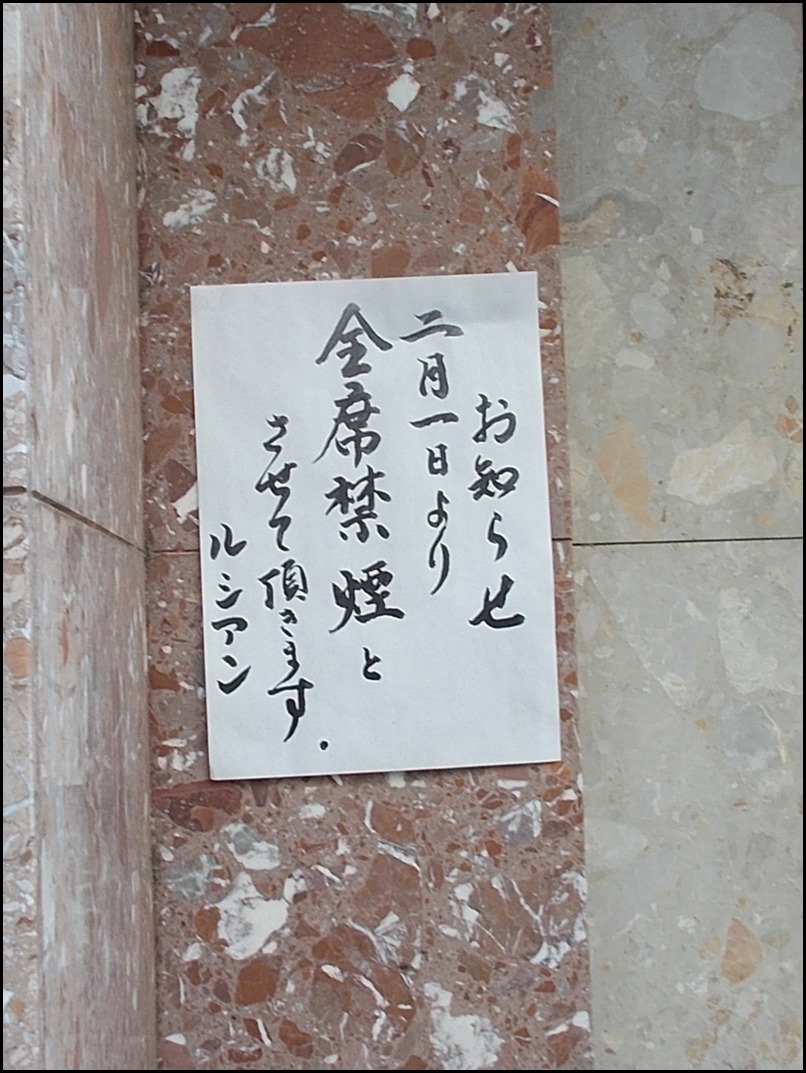 お知らせ
二月一日より
全席禁煙と
させて頂きます.
ルシアン